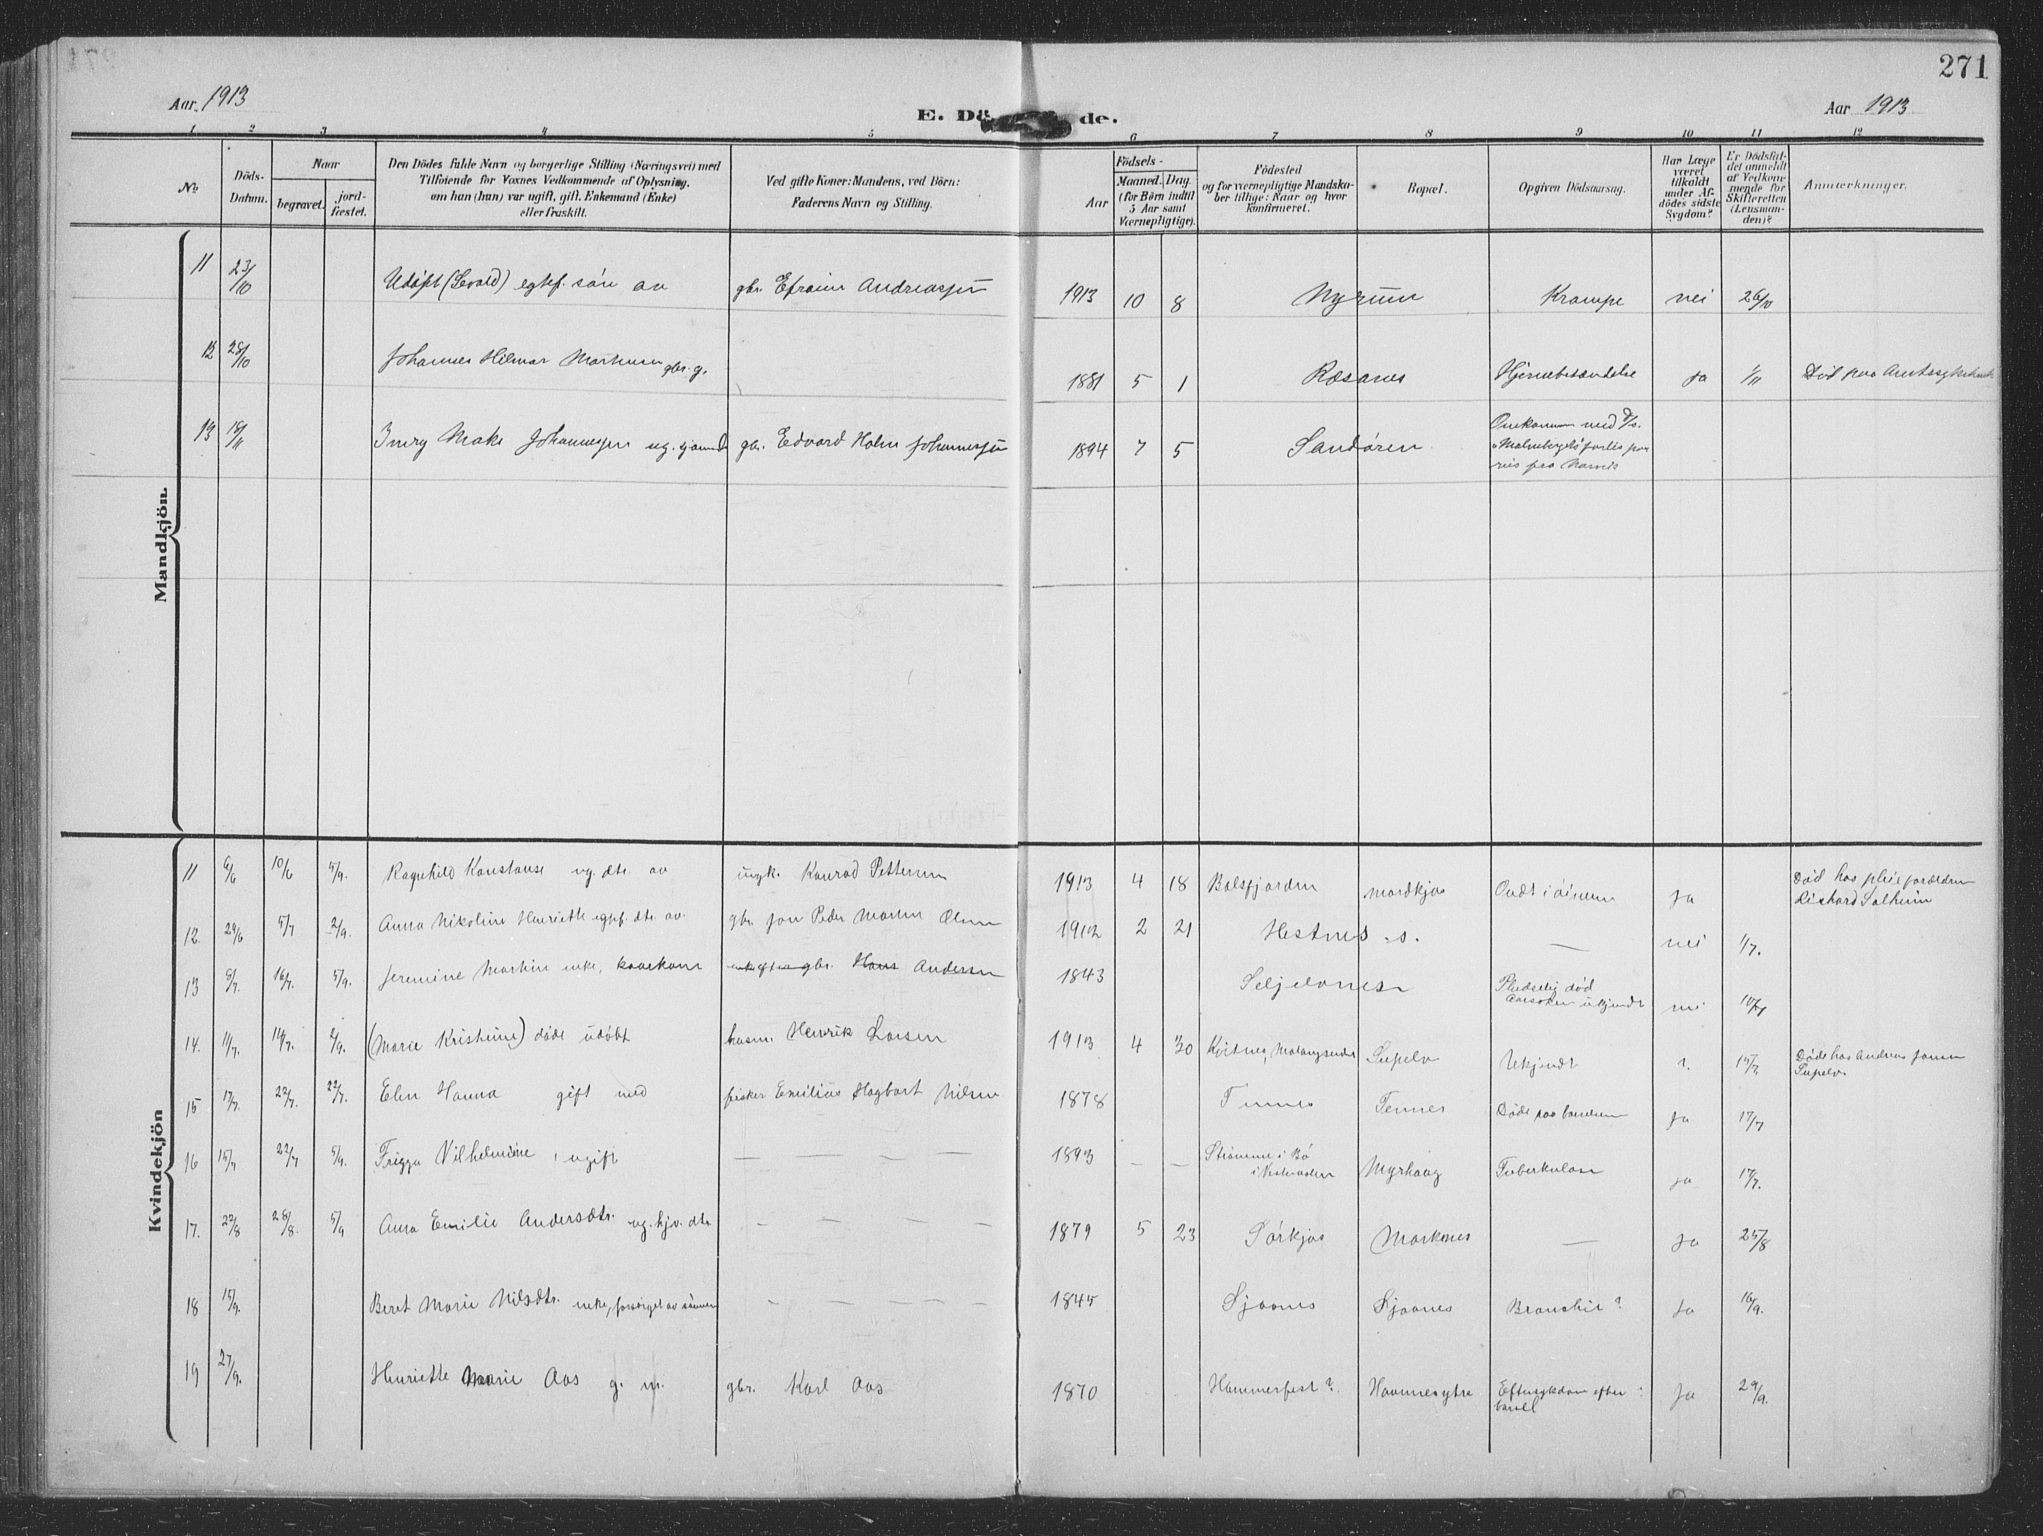 271
Aar 1913
E. Dö de.
Aar 1913
1 2 3 4 5 6 7 8 9 10 11 12
No
Döds-Datum.
Naar
begravet.
jord-fæstet.
Den Dödes fulde Navn og borgerlige Stilling (Næringsvei) med
Tilföiende for Voxnes Vedkommende af Oplysning,
om han (hun) var ugift, gift, Enkemand (Enke)
eller fraskilt.
Ved gifte Koner: Mandens, ved Börn:
Faderens Navn og Stilling.
Födsels-
Aar
Maaned. Dag
(for Börn indtil
5 Aar samt
Værnepligtige).
Födested
og for værnepligtige Mandska-
ber tillige: Naar og hvor
konfirmeret.
Bopæl.
Opgiven Dödsaarsag.
Har Læge
været
tilkaldt
under Af-
dödes sidste
Sygdom?
Er Dödsfal-
det anmeldt
af Vedkom-
mende for
Skifteretten
(Lensman-
den)?
Anmærkninger.
Mandkjön.
11 23/10 Udöpt (Sevald) egtef. sön av gbr. Efraim Andreassen 1913 10 8 Nyrum Krampe nei 26/10
12 28/10 Johannes Hilmar Martinsen gbr. g. 1881 5 1 Ræsanes Hjernebetændelse ja 1/11 Död paa Amtssykehus
13 18/11 Ingv Make Johannessen ug. gbr. Edvard Holm Johannessen 1894 7 5 Sandören Omkommen med D/S.
"Malmberget" forlis paa
reis fra Narvik
Kvindekjön
11 6/6 10/6 5/9. Ragnhild Konstanse ug. dtr. av ungk. Konrad Pettersen 1913 4 18 Balsfjorden Mordkjos Ondt i ja Död hos pleieforældre
Rikhard Solheim
12. 29/6 5/7 2/9. Anna Nikoline Henriette egtef. dtr. av gbr. Jon Peder Martin Olsen 1912 2 21 Hestnes — nei 1/7.
13 8/7. 16/7. 5/9. Jeremine Martine enke, gbr. Hans Andersen 1843 Seljelvnes Pludselig död
aarsaken ukjendt nei 10/7
14. 11/7. 14/7. 2/9. (Marie Kristine) döde udöbt husm. Henrik Larsen 1913 4 30 Kvitnes, Malangseidet Sagelv Ukjendt ?. 15/7. Döde hos Andreas Jensen
Sagelv.
15 17/7. 22/7. 22/7. Elen Hanna gift med fisker Emilius Hagbart Nilsen 1878 Tennes Tennes Döde paa barselseng ja 17/7
16 15/7 22/7 5/9. Frigga Vilhelmine, ugift — — — — 1893 — — Strömme i Bö
i Vesteraalen Myrhaug Tuberkulose ja 17/7.
17. 22/8 28/8. 5/9 Anna Emilie Andersdtr. ug. gbr. dtr. — — — — 1879 5 23 Sörkjos Markenes — ja 25/8
18 15/9. Beret Marie Nilsdtr. enke, forsörget av sönnen — — — — 1845 Sjaanes Sjaanes Bronchit? ja 16/9.
19 27/9. Henriette Marie Aas g. m. gbr. Karl Aas 1870 Hammerfest?. Havnnesytre Eftersykdom efter
barsel ? ja 29/9.